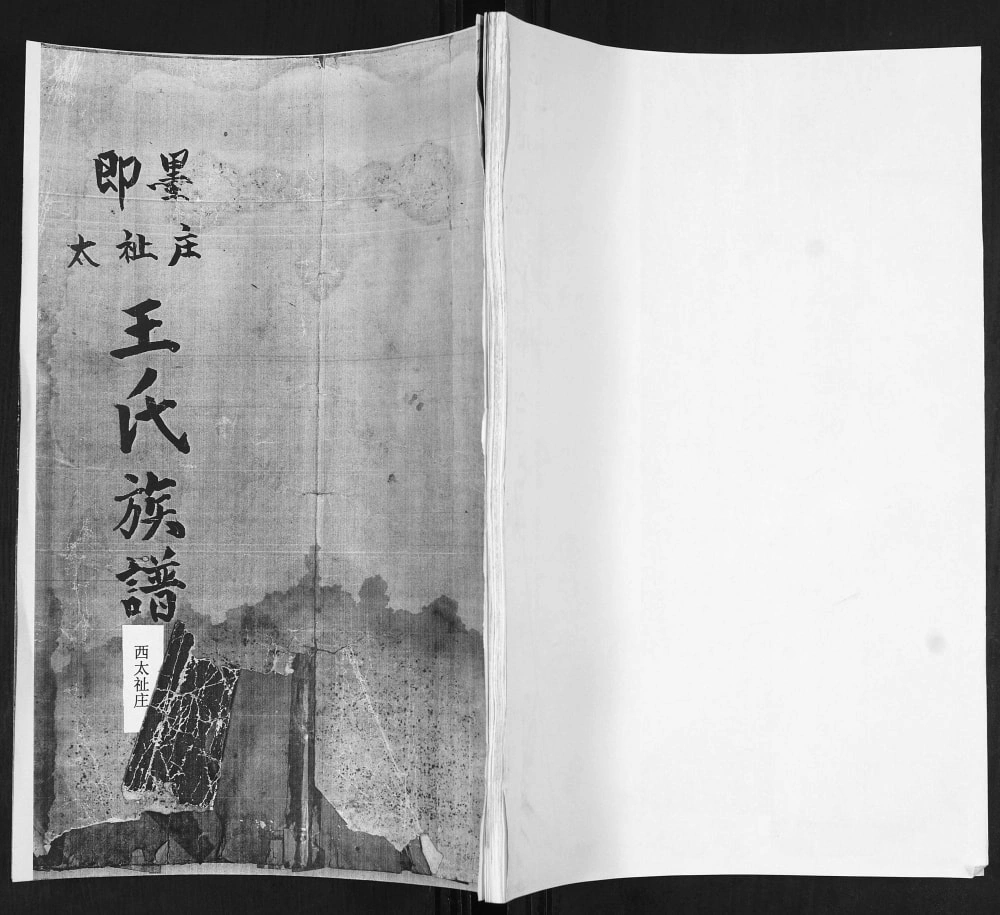 即墨
太祉庄
王氏族譜
西太祉庄